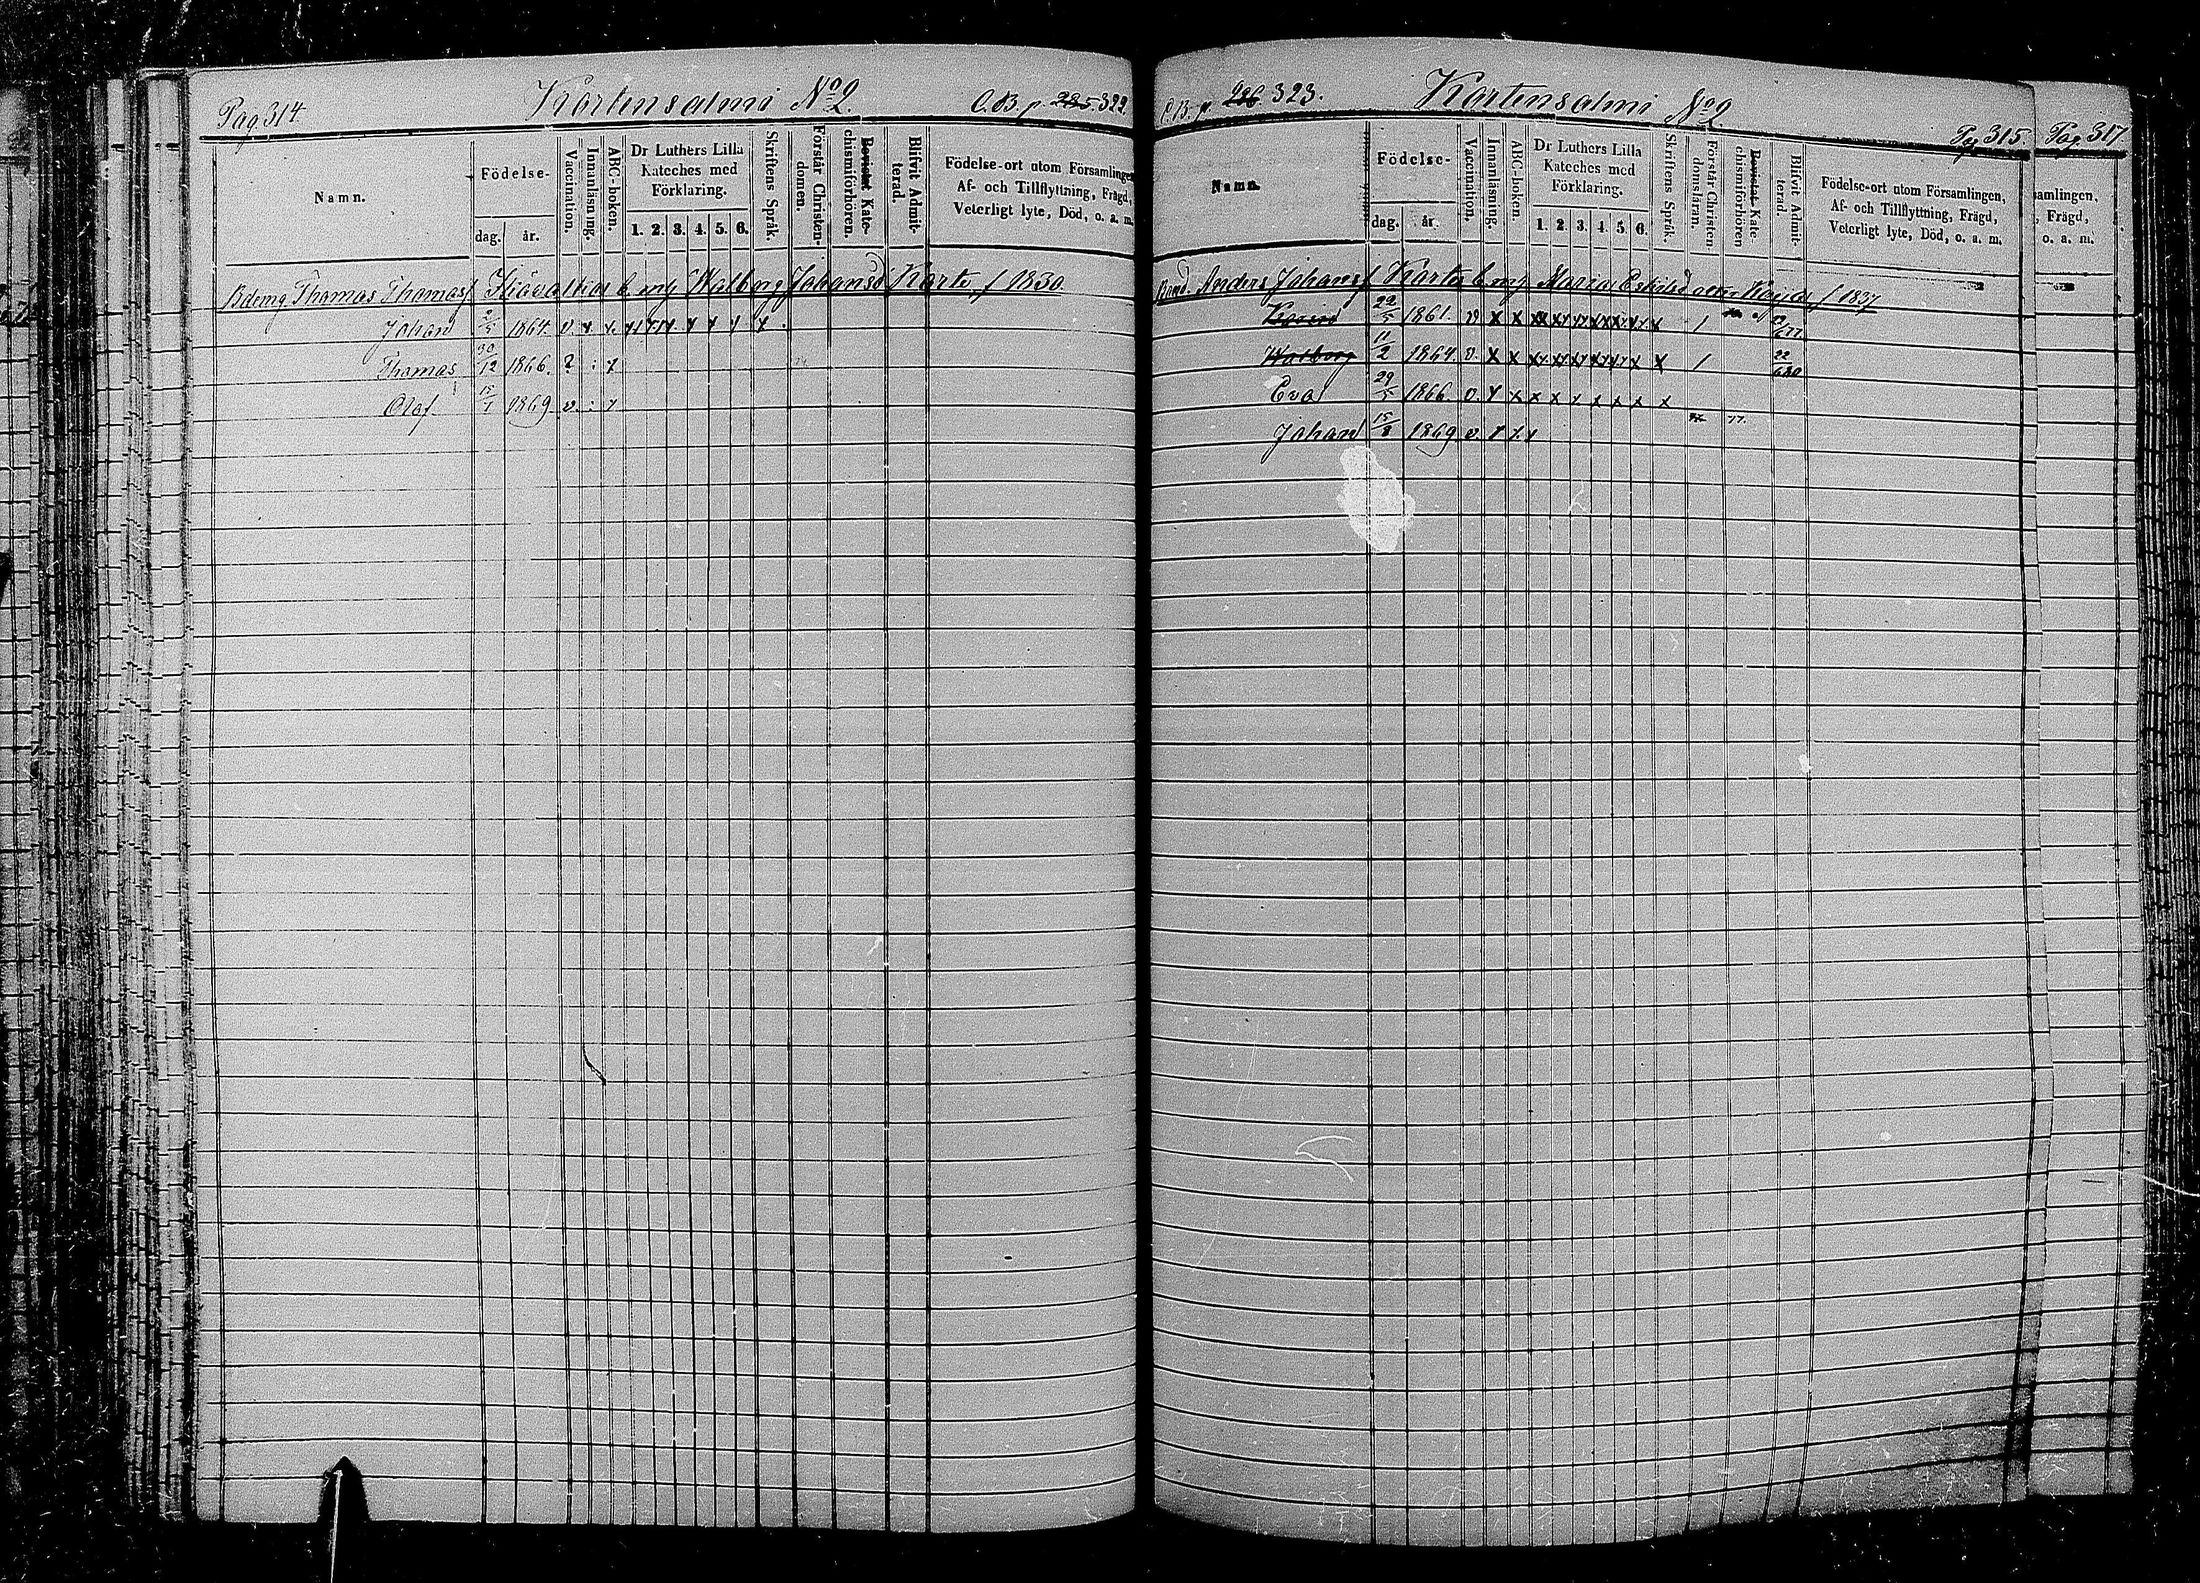 Pag. 314. Kortensalmi No 2. C. B. p. 285 322.
Namn.
Födelse-
dag. år.
Vaccination.
Innanläsning.
ABC-boken.
Dr Luthers Lilla
Kateches med
Förklaring.
1. 2. 3. 4. 5. 6.
Skriftens Språk.
Förstår Christen-
domen.
Bevistat Kate-
chismiförhören.
Blifvit Admit-
terad.
Födelse-ort utom Församlingen
Af- och Tillflyttning, Frägd,
Veterligt lyte, Död, o. a. m.
Thomas Thomasf Walborg Johansd Korte f 1830
Johan 2/5 1864. v. x x. x x x x x x x
Thomas 30/12 1866. ? : x
Olof 15/1 1869 v. : x
C. B. p. 286 323. Kortensalmi No 2 Pag 315.
Namn.
Födelse-
dag. år.
Vaccination.
Innanläsning.
ABC-boken.
Dr Luthers Lilla
Kateches med
Förklaring.
1. 2. 3. 4. 5. 6.
Skriftens Språk.
Förstår Christen-
domsläran.
Bevistat Kate-
chismiförhören
Blifvit Admit-
terad.
Födelse-ort utom Församlingen,
Af- och Tillflyttning, Frägd,
Veterligt lyte, Död, o. a. m.
Anders Johansf Korte Maria f 1837
22/5 1861. v x x
Walborg 11/2 1864. v. x x x / 22/6 80
Eva 29/5 1866. v. x x x x x x x x x
Johan 15/8 1869 v. x x x
Pag. 317
amlingen,
, Frägd,
o. a. m.